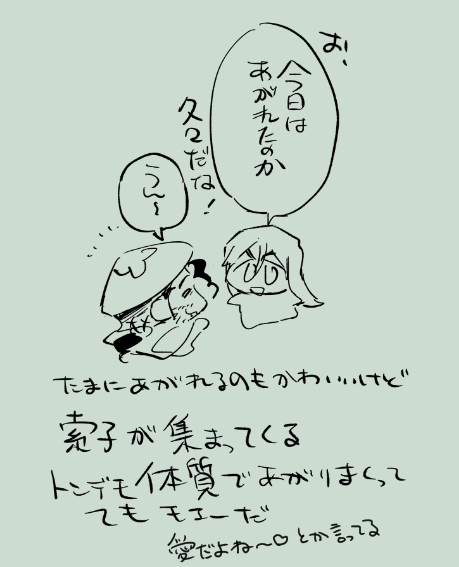 お!
今日は
あがれたのか
久々だな!
うん〜
たまにあがれるのもかわいいけど
索子が集まってくる
トンデモ体質であがりまくって
てもモエーだ
愛だよね〜♡とか言ってる